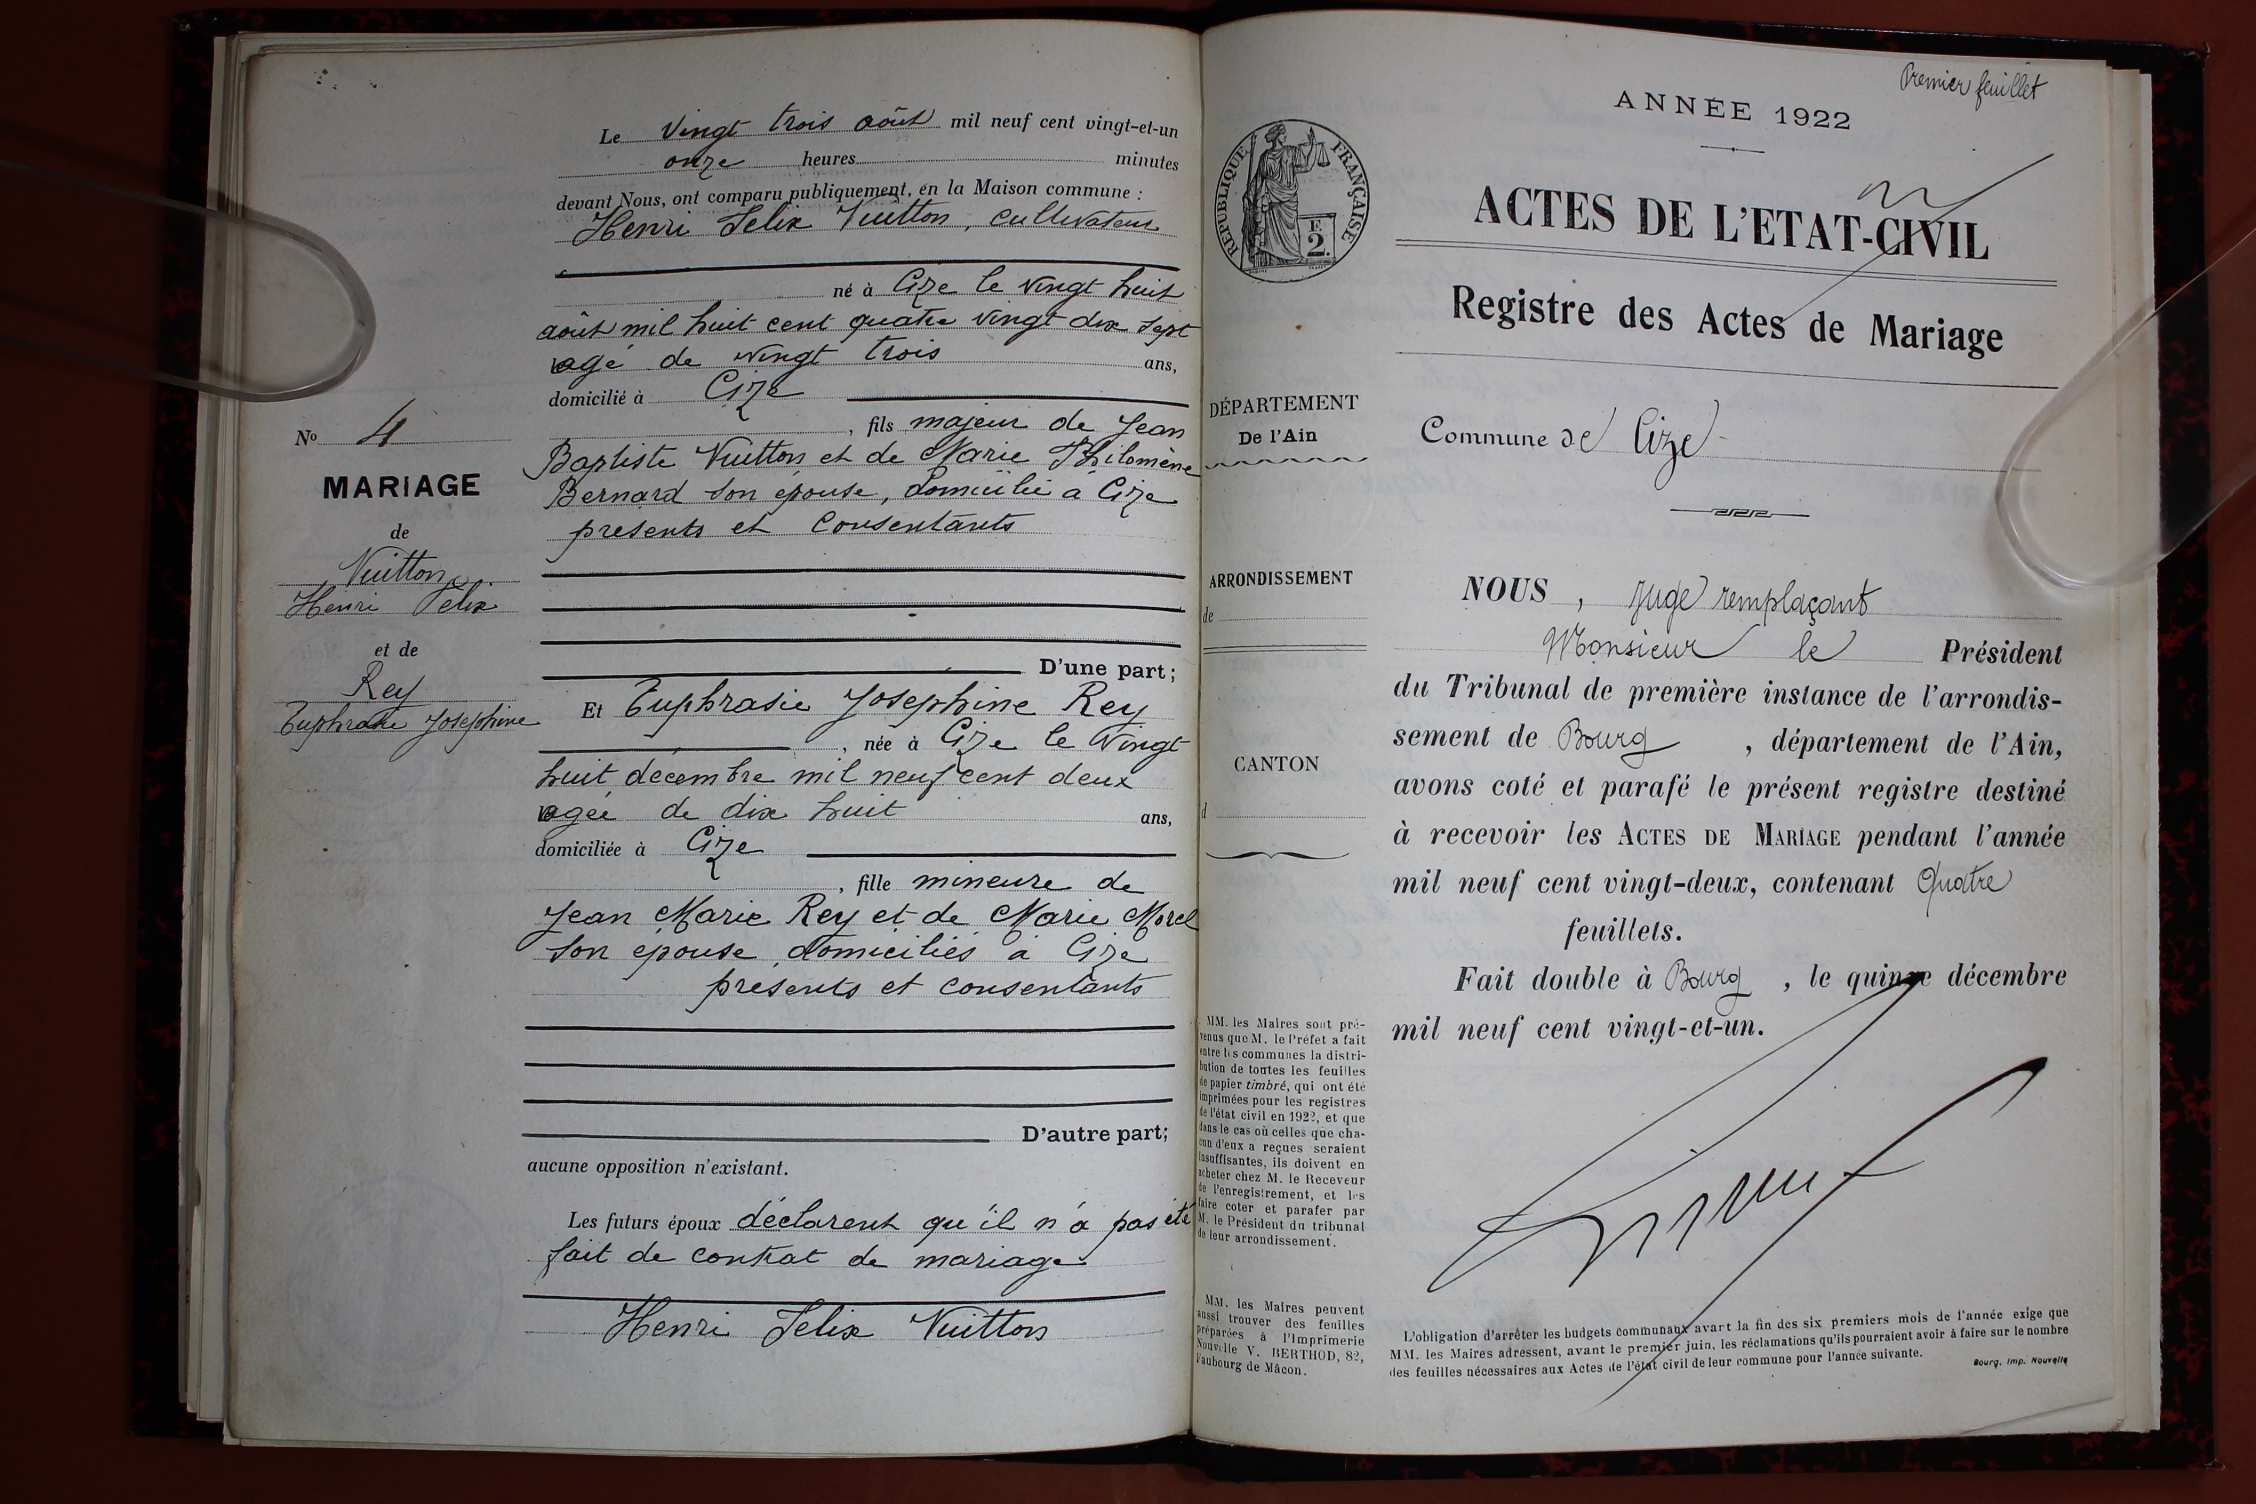 Le Vingt trois août mil neuf cent vingt-et-un
onze heures minutes
devant Nous, ont comparu publiquement, en la Maison commune :
Henri Felix Vuitton, cultivateur
né à Cize le vingt huit
août mil huit cent quatre vingt dix sept
agé de vingt trois ans,
domicilié à Cize
, fils majeur de Jean
Baptiste Vuitton et de Marie Philomène
Bernard son épouse, domicilié à Cize
presents et consentants
D'une part;
Et Euphrasie Josephine Rey
, née à Cize le vingt
huit décembre mil neuf cent deux
agée de dix huit ans,
domiciliée à Cize
, fille mineure de
Jean Marie Rey et de Marie Morel
son épouse, domiciliés à Cize
presents et consentants
D'autre part;
aucune opposition n'existant.
Les futurs époux déclarent qu'il n'a pas été
fait de contrat de mariage
Henri Felix Vuitton
No 4
MARIAGE
de
Vuitton
Henri Felix
et de
Rey
Euphrasie Josephine
Premier feuillet
ANNÉE 1922
RÉPUBLIQUE FRANÇAISE
F
2.
ACTES DE L'ETAT-CIVIL
Registre des Actes de Mariage
DÉPARTEMENT
De l'Ain
Commune de Cize
ARRONDISSEMENT
de
CANTON
d
NOUS, Juge remplaçant
Monsieur le Président
du Tribunal de première instance de l'arrondis-
sement de Bourg, département de l'Ain,
avons coté et parafé le présent registre destiné
à recevoir les ACTES DE MARIAGE pendant l'année
mil neuf cent vingt-deux, contenant Quatre
feuillets.
Fait double à Bourg, le quinze décembre
mil neuf cent vingt-et-un.
MM. les Maires sont pré-
venus que M. le Préfet a fait
entre les communes la distri-
bution de toutes les feuilles
de papier timbré, qui ont été
imprimées pour les registres
de l'état civil en 1922, et que
dans le cas où celles que cha-
cun d'eux a reçues seraient
insuffisantes, ils doivent en
acheter chez M. le Receveur
de l'enregistrement, et les
faire coter et parafer par
M. le Président du tribunal
de leur arrondissement.
MM. les Maires peuvent
aussi trouver des feuilles
préparées à l'Imprimerie
Nouvelle V. BERTHOD, 82,
Faubourg de Mâcon.
L'obligation d'arrêter les budgets communaux avart la fin des six premiers mois de l'année exige que
MM. les Maires adressent, avant le premier juin, les réclamations qu'ils pourraient avoir à faire sur le nombre
des feuilles nécessaires aux Actes de l'état civil de leur commune pour l'année suivante.
Bourg, Imp. Nouvelle